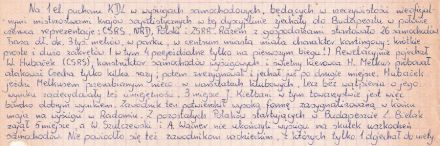 Na 1 el. pucharu KDL w wyścigach samochodowych, będących w rzeczywistości nieoficjal-
nymi mistrzostwami krajów socjalistycznych w tej dyscyplinie zjechały do Budapesztu w połowie
czerwca reprezentacje: CSRS, NRD, Polski i ZSRR. Razem z gospodarzami startowało 26 samochodów
Trasa dł. ok. 3 tyś. metrów, w parku, w centrum miasta miała charakter kartingowy: krótkie
proste i dużo zakrętów i w tym 1 pojedynki tylko na pierwszego biegu! Rewelacyjnie pojechał
W. Hubáček (CSRS), konstruktor samochodów wyścigowych i świetny kierowca. H. Melkus próbował
atakować Czecha tylko kilka razy; potem zrezygnował i jechał już po drugie miejsce. Hubaček
jechał Melkusem przerabianym nieco w warsztatach klubowych, lecz bez wątpienia o jego
wyniku zadecydowały też umiejętności. 3 miejsce J. Kiełbani w tym towarzystwie jest więc
bardzo dobrym wynikiem. Zawodnik ten potwierdził wysoką formę zasygnalizowaną w końcu
maja na wyścigu w Radomiu. Z pozostałych Polaków startujących w Budapeszcie L. Bielak
zajął 5 miejsce, a W. Szulczewski i A. Wajner nie ukończyli wyścigu na skutek uszkodzeń
samochodów. Nie powiodło się też zawodnikom radzieckim, z których tylko 1 dojechał do mety